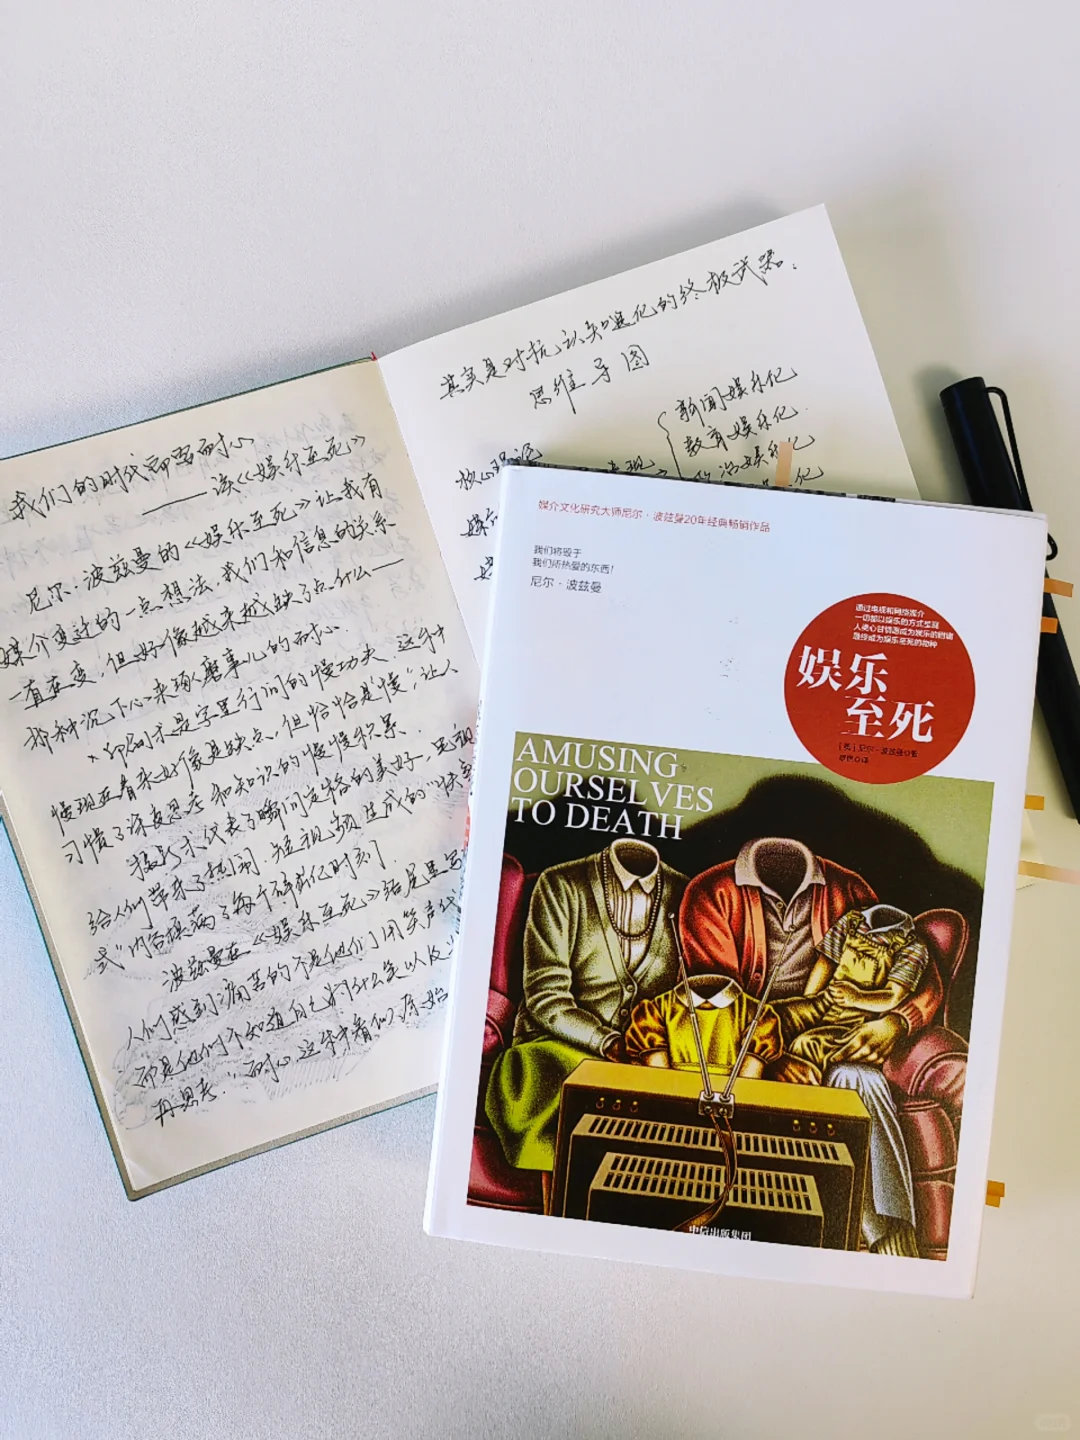 我们的时代需要耐心
——读《娱乐至死》
尼尔·波兹曼的《娱乐至死》让我有
媒介变迁的一点想法,我们和信息的关系
一直在变,但好像越来越缺了点什么——
那种沉下心来琢磨事儿的耐心.
印刷术是字里行间的慢功夫,这种
慢现在看来好像是缺点,但恰恰是"慢",让人
习惯了深度思考和知识的慢慢积累.
摄影术代表了瞬间定格的美好,电视
给人们带来了热闹,短视频生成的"快餐
式"内容填满了每个碎片化时刻.
波兹曼在《娱乐至死》结尾里写
人们感到痛苦的不是他们用笑声代
而是他们不知道自己为什么笑以及
再思考."耐心,这件看似原始
其实是对抗认知退化的终极武器.
思维导图
新闻娱乐化
教育娱乐化
政治娱乐化
化
核心
表现
媒介
媒介文化研究大师尼尔·波兹曼20年经典畅销作品
我们将毁于
我们所热爱的东西!
尼尔·波兹曼
通过电视和网络媒介
一切都以娱乐的方式呈现
人类心甘情愿成为娱乐的附庸
最终成为娱乐至死的物种
娱乐
至死
[美] 尼尔·波兹曼◎著
章艳◎译
AMUSING
OURSELVES
TO DEATH
中信出版集团